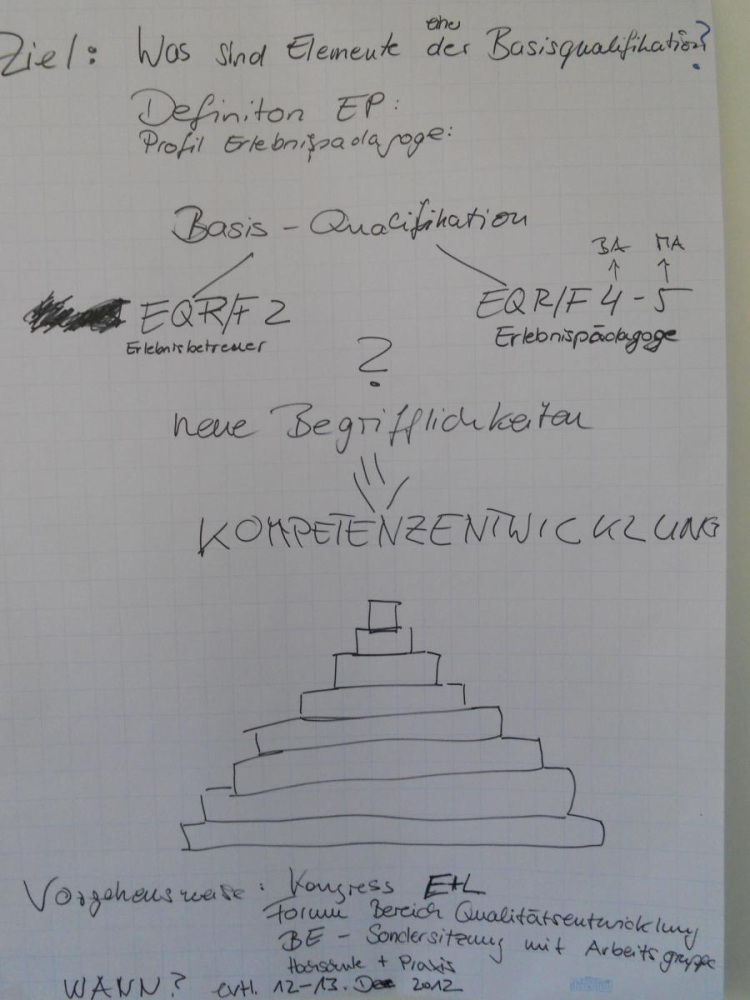 ehe
Ziel: Was sind Elemente der Basisqualifikation?
Definiton EP:
Profil Erlebnispädagoge:
Basis - Qualifikation
BA MA
EQR/F 2 EQR/F 4-5
Erlebnisbetreuer Erlebnispädagoge
?
neue Begrifflichkeiten
KOMPETENZENTWICKLUNG
Vorgehensweise: Kongress E+L
Forum Bereich Qualitätsentwicklung
BE - Sondersitzung mit Arbeitsgruppe
Hochschule + Praxis
WANN? evtl. 12-13. Dez 2012